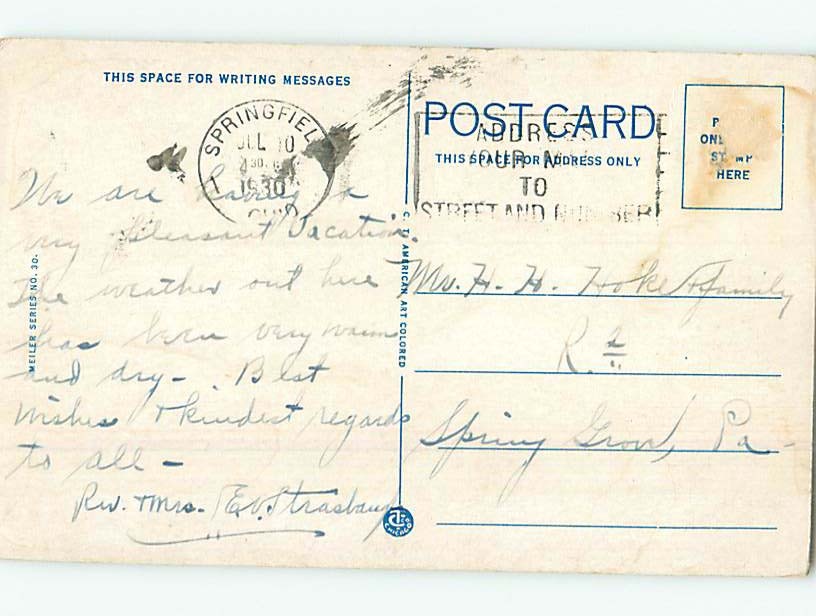 THIS SPACE FOR WRITING MESSAGES
SPRINGFIEL
JUL 10
1930
OHIO
We are having a
very pleasant Vacation.
The weather out here
has been very warm
and dry - . Best
wishes & kindest regards
to all -
Rev. & Mrs. E. V. Strasbaugh
MEILER SERIES NO. 30.
C. T. AMERICAN ART COLORED
POST CARD
THIS SPACE FOR ADDRESS ONLY
ADDRESS
OUR M
TO
STREET AND NUMBER
P
ONE
STAMP
HERE
Mr. H. H. Hoke & family
R. 2
Spring Grove, Pa -
CHICAGO